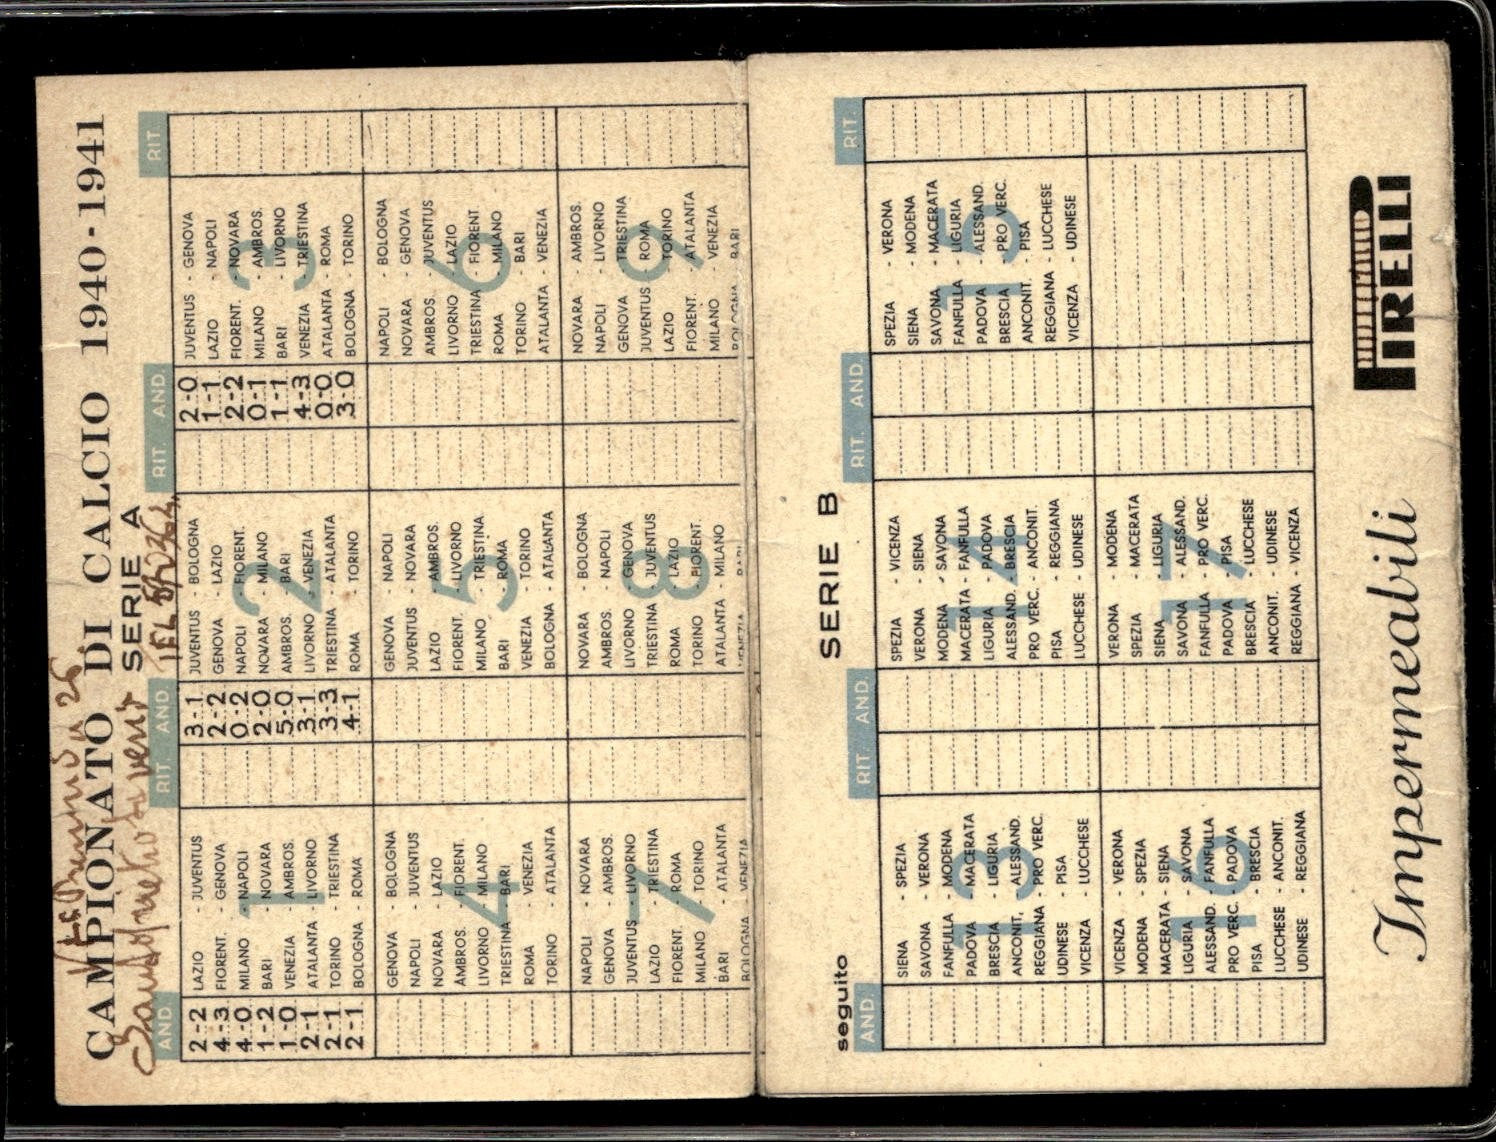 CAMPIONATO DI CALCIO 1940-1941
SERIE A
AND. RIT. AND. RIT. AND. RIT.
1
2-2 LAZIO - JUVENTUS
4-3 FIORENT. - GENOVA
4-0 MILANO - NAPOLI
1-2 BARI - NOVARA
1-0 VENEZIA - AMBROS.
2-1 ATALANTA - LIVORNO
2-1 TORINO - TRIESTINA
2-1 BOLOGNA - ROMA
2
3-1 JUVENTUS - BOLOGNA
2-2 GENOVA - LAZIO
0-2 NAPOLI - FIORENT.
2-0 NOVARA - MILANO
5-0 AMBROS. - BARI
3-1 LIVORNO - VENEZIA
3-3 TRIESTINA - ATALANTA
4-1 ROMA - TORINO
3
2-0 JUVENTUS - GENOVA
1-1 LAZIO - NAPOLI
2-2 FIORENT. - NOVARA
0-1 MILANO - AMBROS.
1-1 BARI - LIVORNO
4-3 VENEZIA - TRIESTINA
0-0 ATALANTA - ROMA
3-0 BOLOGNA - TORINO
4
GENOVA - BOLOGNA
NAPOLI - JUVENTUS
NOVARA - LAZIO
AMBROS. - FIORENT.
LIVORNO - MILANO
TRIESTINA - BARI
ROMA - VENEZIA
TORINO - ATALANTA
5
GENOVA - NAPOLI
JUVENTUS - NOVARA
LAZIO - AMBROS.
FIORENT. - LIVORNO
MILANO - TRIESTINA
BARI - ROMA
VENEZIA - TORINO
BOLOGNA - ATALANTA
6
NAPOLI - BOLOGNA
NOVARA - GENOVA
AMBROS. - JUVENTUS
LIVORNO - LAZIO
TRIESTINA - FIORENT.
ROMA - MILANO
TORINO - BARI
ATALANTA - VENEZIA
7
NAPOLI - NOVARA
GENOVA - AMBROS.
JUVENTUS - LIVORNO
LAZIO - TRIESTINA
FIORENT. - ROMA
MILANO - TORINO
BARI - ATALANTA
BOLOGNA - VENEZIA
8
NOVARA - BOLOGNA
AMBROS. - NAPOLI
LIVORNO - GENOVA
TRIESTINA - JUVENTUS
ROMA - LAZIO
TORINO - FIORENT.
ATALANTA - MILANO
VENEZIA - BARI
9
NOVARA - AMBROS.
NAPOLI - LIVORNO
GENOVA - TRIESTINA
JUVENTUS - ROMA
LAZIO - TORINO
FIORENT. - ATALANTA
MILANO - VENEZIA
BOLOGNA - BARI
seguito SERIE B
AND. RIT. AND. RIT. AND. RIT.
13
SIENA - SPEZIA
SAVONA - VERONA
FANFULLA - MODENA
PADOVA - MACERATA
BRESCIA - LIGURIA
ANCONIT. - ALESSAND.
REGGIANA - PRO VERC.
UDINESE - PISA
VICENZA - LUCCHESE
14
SPEZIA - VICENZA
VERONA - SIENA
MODENA - SAVONA
MACERATA - FANFULLA
LIGURIA - PADOVA
ALESSAND. - BRESCIA
PRO VERC. - ANCONIT.
PISA - REGGIANA
LUCCHESE - UDINESE
15
SPEZIA - VERONA
SIENA - MODENA
SAVONA - MACERATA
FANFULLA - LIGURIA
PADOVA - ALESSAND.
BRESCIA - PRO VERC.
ANCONIT. - PISA
REGGIANA - LUCCHESE
VICENZA - UDINESE
16
VICENZA - VERONA
MODENA - SPEZIA
MACERATA - SIENA
LIGURIA - SAVONA
ALESSAND. - FANFULLA
PRO VERC. - PADOVA
PISA - BRESCIA
LUCCHESE - ANCONIT.
UDINESE - REGGIANA
17
VERONA - MODENA
SPEZIA - MACERATA
SIENA - LIGURIA
SAVONA - ALESSAND.
FANFULLA - PRO VERC.
PADOVA - PISA
BRESCIA - LUCCHESE
ANCONIT. - UDINESE
REGGIANA - VICENZA
Impermeabili PIRELLI